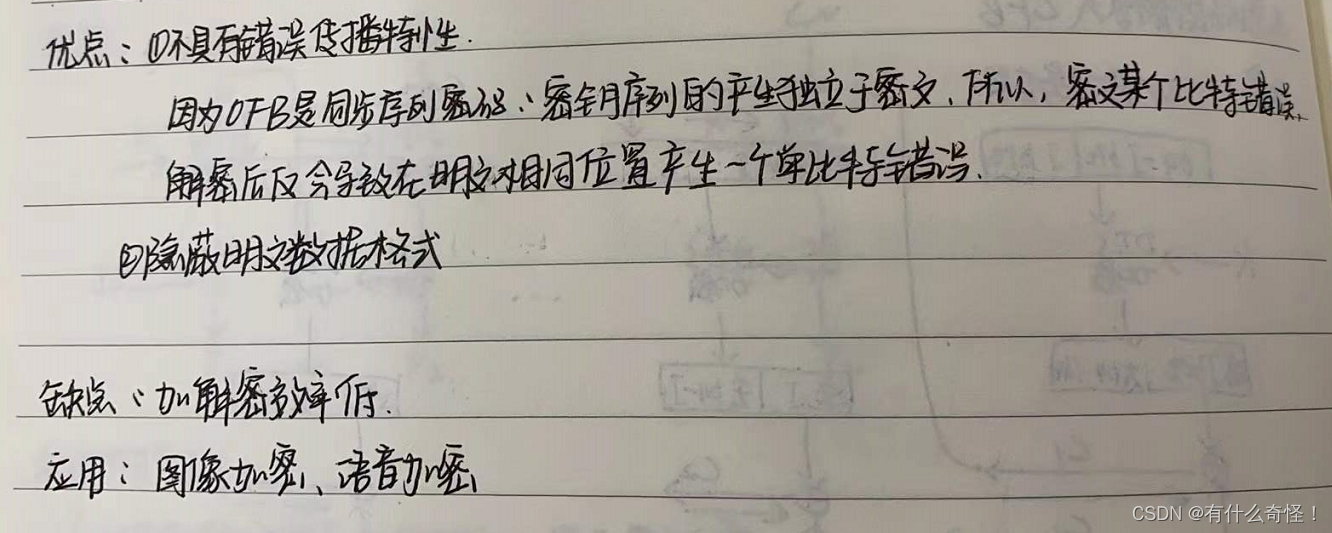 优点：①不具有错误传播特性.
因为OFB是同步序列密码，密钥序列的产生独立于密文，所以，密文某个比特错误，
解密后只会导致在明文相同位置产生一个单比特错误.
②隐蔽明文数据格式
缺点：加解密效率低.
应用：图像加密、语音加密
CSDN @有什么奇怪！